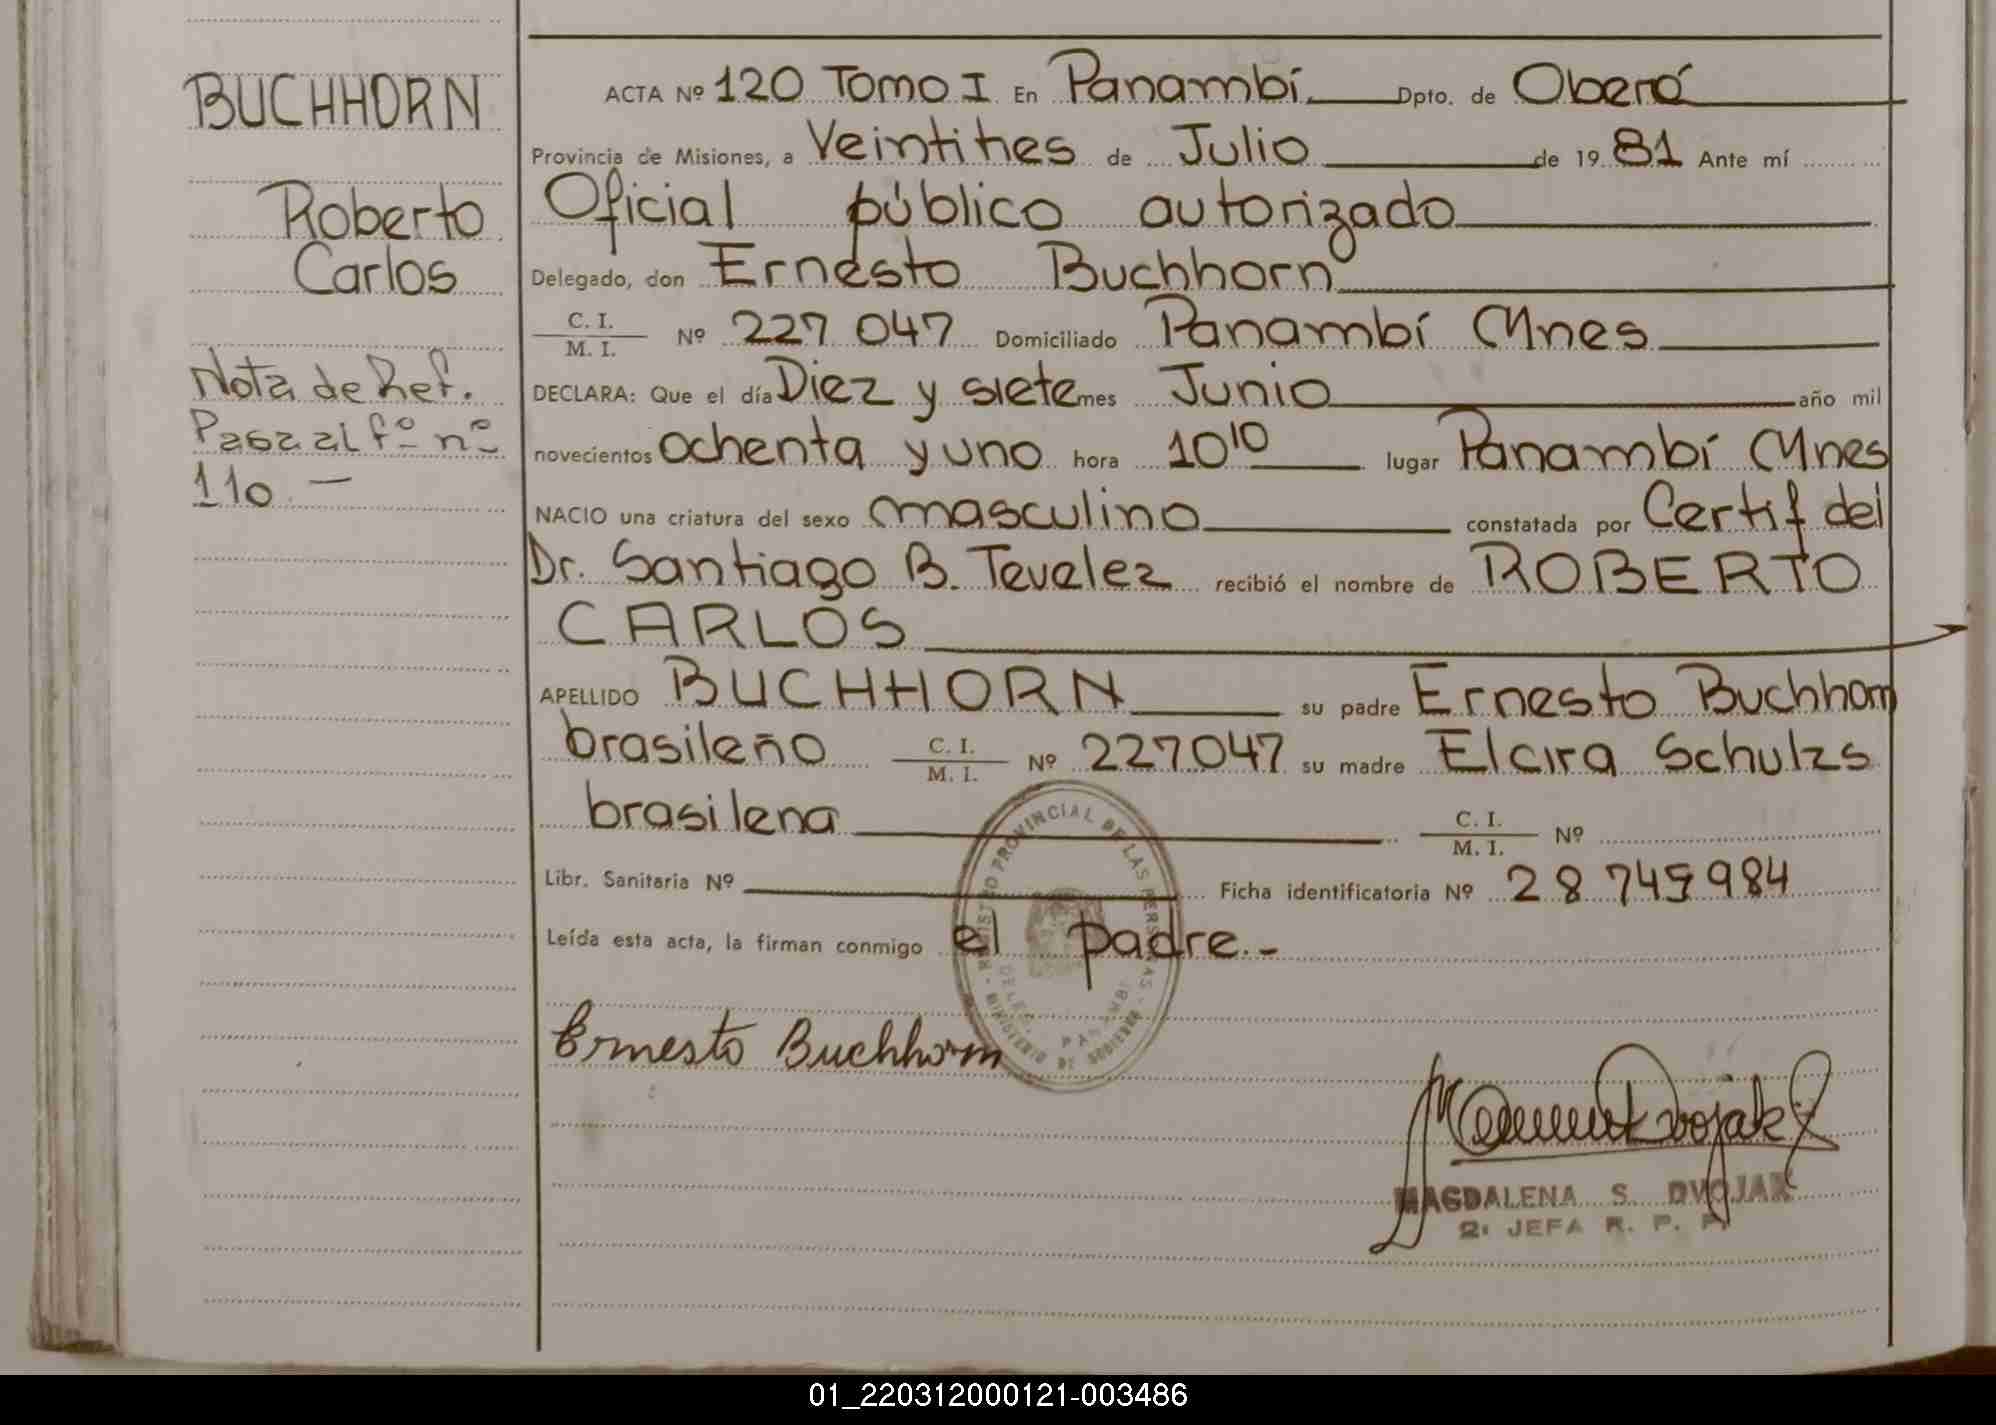 BUCHHORN
Roberto
Carlos
Nota de Ref.
Pasa al fº nº
110 —
ACTA Nº 120 Tomo I En Panambí Dpto. de Oberá
Provincia de Misiones, a Veintitres de Julio de 1981 Ante mí
Oficial público autorizado
Delegado, don Ernesto Buchhorn
C. I.
M. I. Nº 227 047 Domiciliado Panambí Mnes
DECLARA: Que el día Diez y siete mes Junio año mil
novecientos ochenta y uno hora 10 10 lugar Panambí Mnes
NACIO una criatura del sexo masculino constatada por Certif del
Dr. Santiago B. Tevelez recibió el nombre de ROBERTO
CARLOS
APELLIDO BUCHHORN su padre Ernesto Buchhorn
brasileño C. I. M. I. Nº 227047 su madre Elcira Schulzs
brasilena C. I. M. I. Nº
Libr. Sanitaria Nº Ficha identificatoria Nº 28 745984
Leída esta acta, la firman conmigo el padre.-
REGISTRO PROVINCIAL DE LAS PERSONAS - MINISTERIO DE GOBIERNO -
PANAMBI
Ernesto Buchhorn
Dvojak
MAGDALENA S. DVOJAK
2ª JEFA R. P. P.
01_220312000121-003486